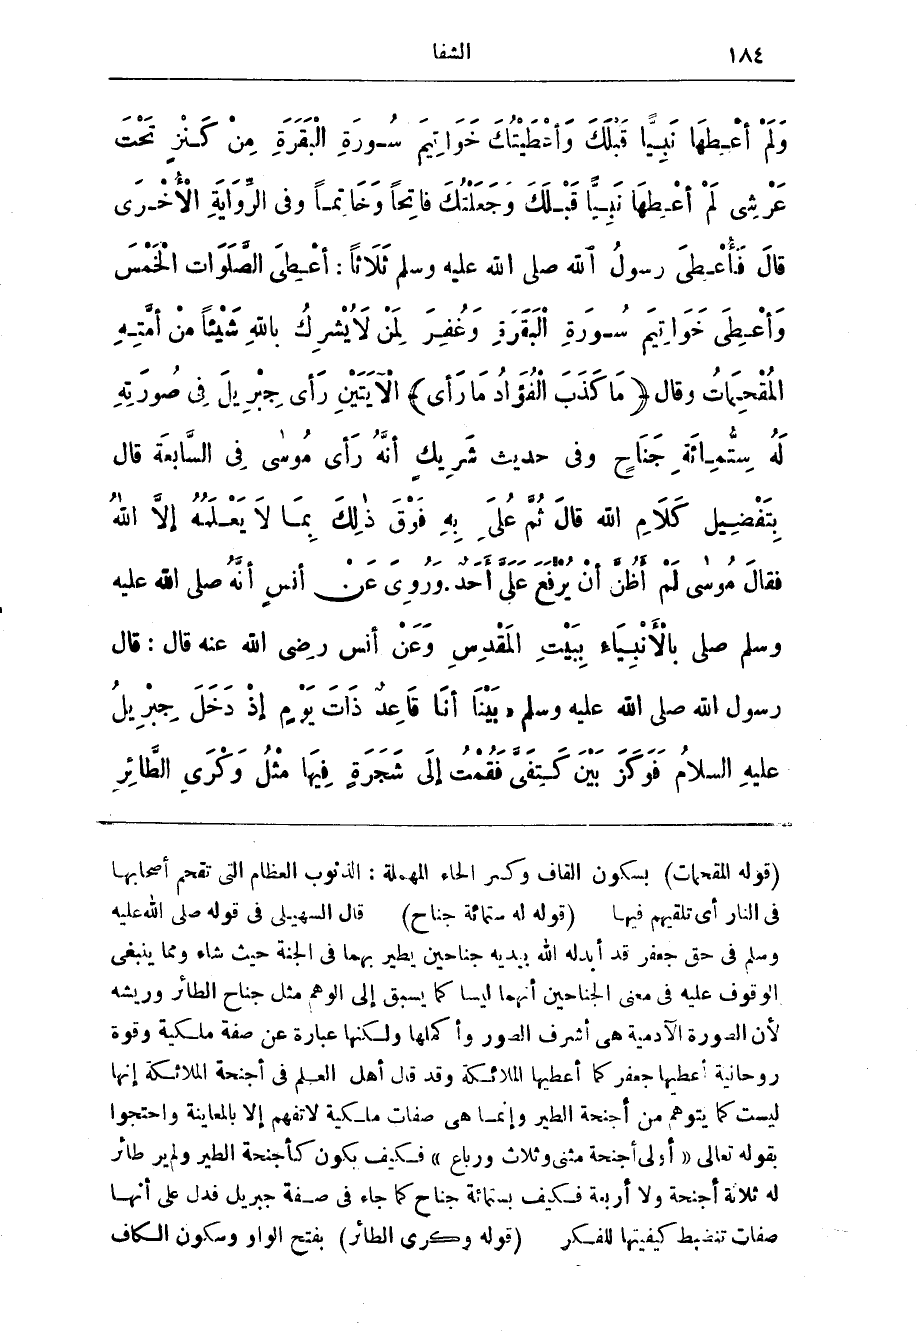 ١٨٤ الشفا
وَلَمْ أُعْطِهَا نَبِيًّا قَبْلَكَ وَأَعْطَيْتُكَ خَوَاتِيمَ سُورَةِ الْبَقَرَةِ مِنْ كَنْزٍ تَحْتَ
عَرْشِى لَمْ أُعْطِهَا نَبِيًّا قَبْلَكَ وَجَعَلْتُكَ فَاتِحاً وَخَاتِماً وفى الرِّوَايَةِ الْأُخْرَى
قالَ فَأُعْطِىَ رسولُ اللهِ صلى الله عليه وسلم ثَلَاثاً : أُعْطِىَ الصَّلَوَاتِ الْخَمْسَ
وَأُعْطِىَ خَوَاتِيمَ سُورَةِ الْبَقَرَةِ وَغُفِرَ لِمَنْ لَا يُشْرِكُ بِاللهِ شَيْئاً مِنْ أُمَّتِهِ
الْمُقْحِمَاتُ وقال ﴿ مَا كَذَبَ الْفُؤَادُ مَا رَأى ﴾ الْآيَتَيْنِ رَأى جِبْرِيلَ فِى صُورَتِهِ
لَهُ سِتُّمِائَةِ جَنَاحٍ وفى حديث شَرِيكٍ أَنَّهُ رَأى مُوسٰى فِى السَّابِعَةِ قال
بِتَفْضِيلِ كَلَامِ الله قالَ ثُمَّ عُلِىَ بِهِ فَوْقَ ذٰلِكَ بِمَا لَا يَعْلَمُهُ إِلَّا اللهُ
فقالَ مُوسٰى لَمْ أَظُنَّ أَنْ يُرْفَعَ عَلَىَّ أَحَدٌ . وَرُوِىَ عَنْ أنسٍ أَنَّهُ صلى الله عليه
وسلم صلى بِالْأَنْبِيَاءِ بِبَيْتِ الْمَقْدِسِ وَعَنْ أنس رضى الله عنه قال : قال
رسول الله صلى الله عليه وسلم « بَيْنَا أَنَا قَاعِدٌ ذَاتَ يَوْمٍ إِذْ دَخَلَ جِبْرِيلُ
عليهِ السلامُ فَوَكَزَ بَيْنَ كَتِفَىَّ فَقُمْتُ إِلَى شَجَرَةٍ فِيهَا مِثْلُ وَكْرَىِ الطَّائِرِ
(قوله المقحمات) بسكون القاف وكسر الحاء المهملة : الذنوب العظام التى تقحم أصحابها
فى النار أى تلقيهم فيها (قوله له ستمائة جناح) قال السهيلى فى قوله صلى الله عليه
وسلم فى حق جعفر قد أبدله الله بيديه جناحين يطير بهما فى الجنة حيث شاء ومما ينبغى
الوقوف عليه فى معنى الجناحين أنهما ليسا كما يسبق إلى الوهم مثل جناح الطائر وريشه
لأن الصورة الآدمية هى أشرف الصور وأكملها ولكنها عبارة عن صفة ملكية وقوة
روحانية أعطيها جعفر كما أعطيها الملائكة وقد قال أهل العلم فى أجنحة الملائكة إنها
ليست كما يتوهم من أجنحة الطير وإنما هى صفات ملكية لا تفهم إلا بالمعاينة واحتجوا
بقوله تعالى « أولى أجنحة مثنى وثلاث ورباع » فكيف يكون كأجنحة الطير ولم ير طائر
له ثلاثة أجنحة ولا أربعة فكيف بستمائة جناح كما جاء فى صفة جبريل فدل على أنها
صفات تنضبط كيفيتها للفكر (قوله وكرى الطائر) بفتح الواو وسكون الكاف